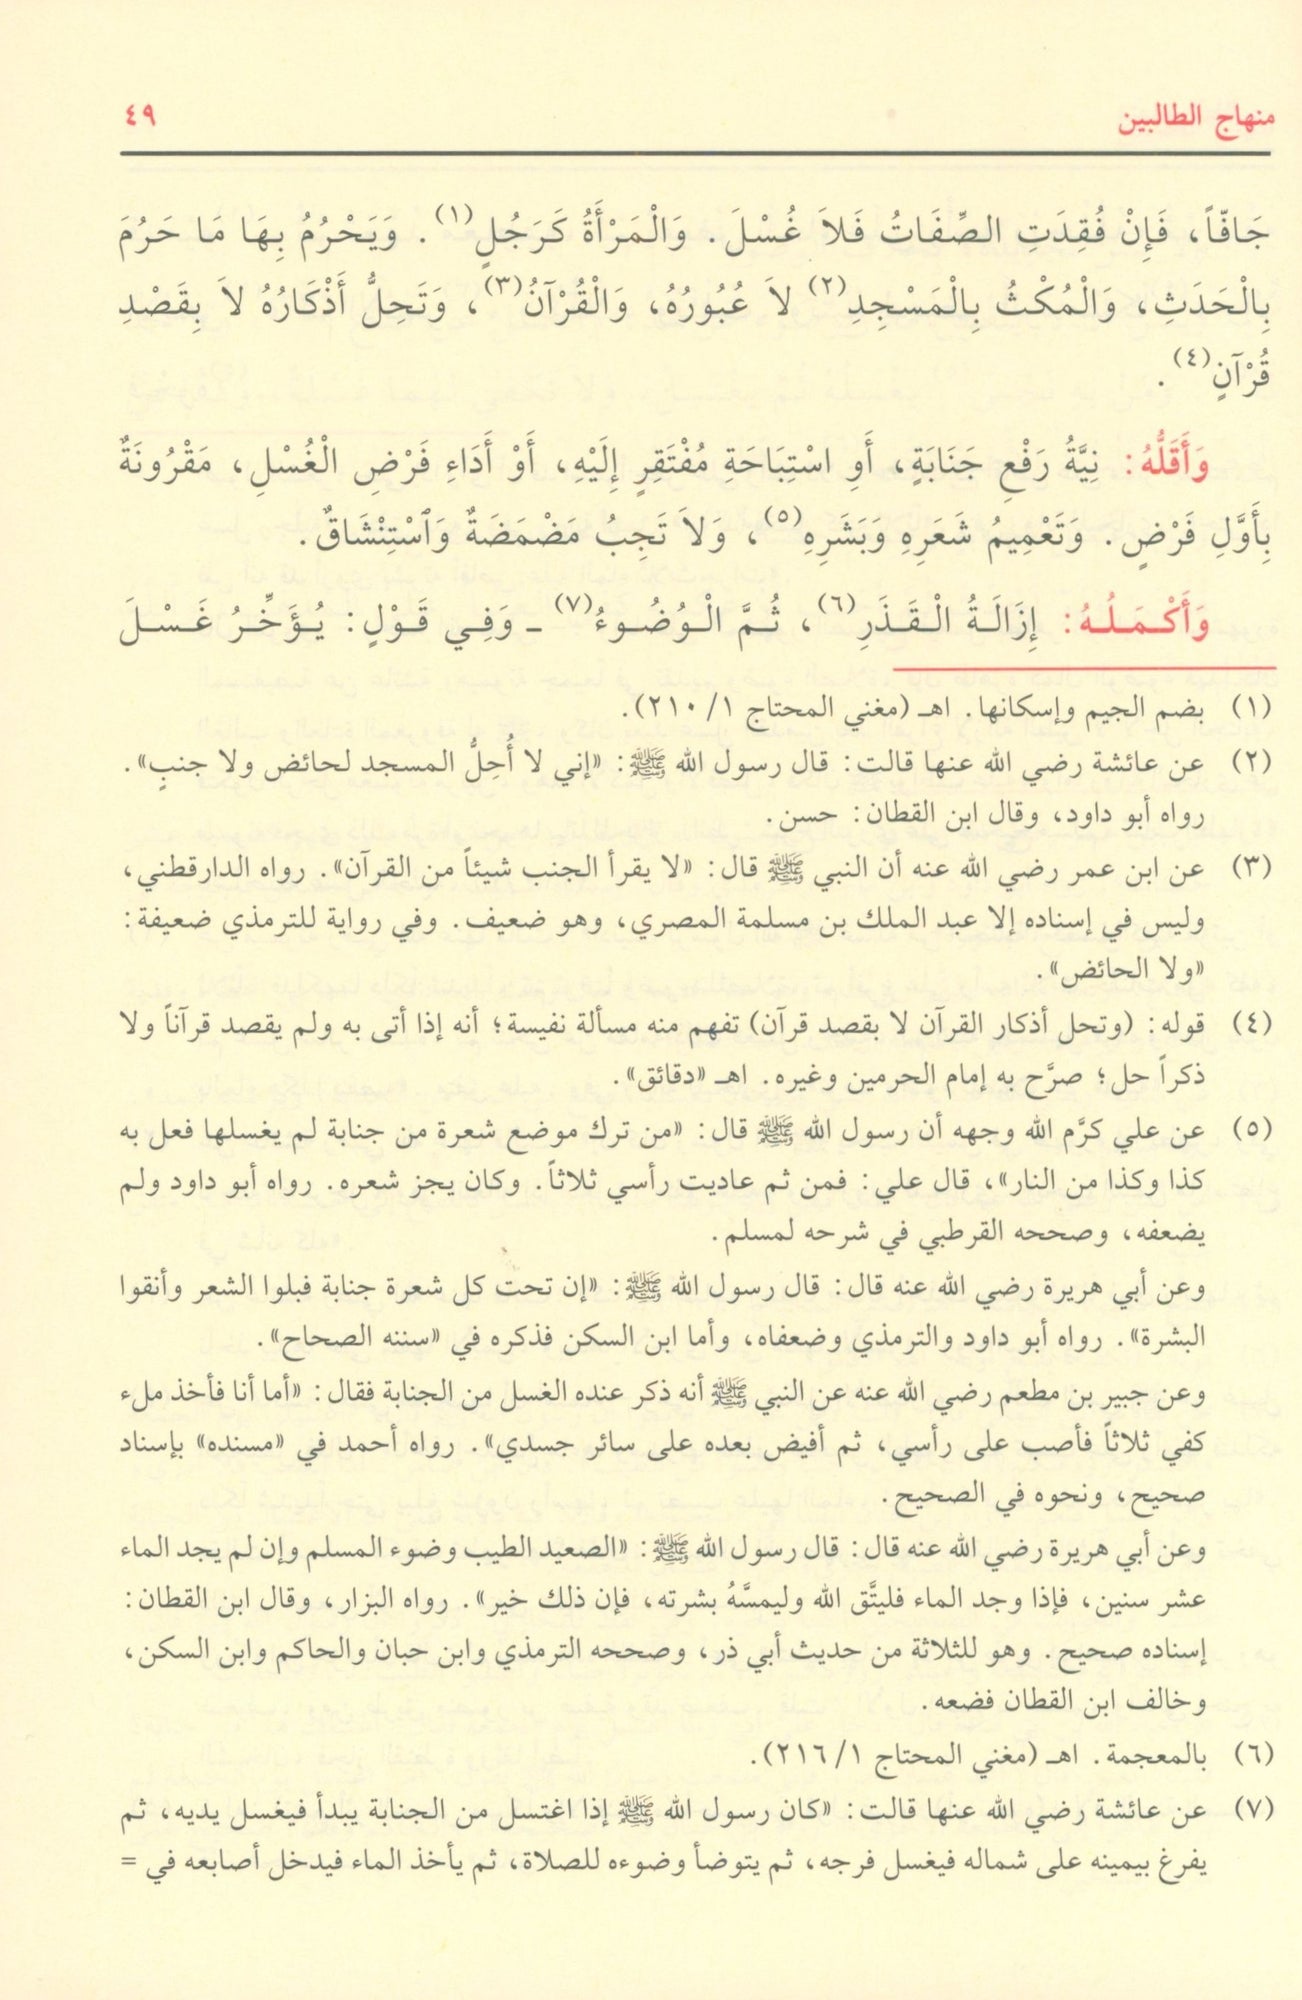 منهاج الطالبين
٤٩
جَافّاً، فَإِنْ فُقِدَتِ الصِّفَاتُ فَلاَ غُسْلَ. وَالْمَرْأَةُ كَرَجُلٍ(١). وَيَحْرُمُ بِهَا مَا حَرُمَ
بِالْحَدَثِ، وَالْمُكْثُ بِالْمَسْجِدِ(٢) لاَ عُبُورُهُ، وَالْقُرْآنُ(٣)، وَتَحِلُّ أَذْكَارُهُ لاَ بِقَصْدِ
قُرْآنٍ(٤).
وَأَقَلُّهُ: نِيَّةُ رَفْعِ جَنَابَةٍ، أَوِ اسْتِبَاحَةِ مُفْتَقِرٍ إِلَيْهِ، أَوْ أَدَاءِ فَرْضِ الْغُسْلِ، مَقْرُونَةٌ
بِأَوَّلِ فَرْضٍ. وَتَعْمِيمُ شَعَرِهِ وَبَشَرِهِ(٥)، وَلاَ تَجِبُ مَضْمَضَةٌ وَٱسْتِنْشَاقٌ.
وَأَكْمَلُهُ: إِزَالَةُ الْقَذَرِ(٦)، ثُمَّ الْوُضُوءُ(٧) ـ وَفِي قَوْلٍ: يُؤَخِّرُ غَسْلَ
(١) بضم الجيم وإسكانها. اهـ (مغني المحتاج ١/ ٢١٠).
(٢) عن عائشة رضي الله عنها قالت: قال رسول الله ﷺ: «إني لا أُحِلُّ المسجد لحائض ولا جنبٍ».
رواه أبو داود، وقال ابن القطان: حسن.
(٣) عن ابن عمر رضي الله عنه أن النبي ﷺ قال: «لا يقرأ الجنب شيئاً من القرآن». رواه الدارقطني،
وليس في إسناده إلا عبد الملك بن مسلمة المصري، وهو ضعيف. وفي رواية للترمذي ضعيفة:
«ولا الحائض».
(٤) قوله: (وتحل أذكار القرآن لا بقصد قرآن) تفهم منه مسألة نفيسة؛ أنه إذا أتى به ولم يقصد قرآناً ولا
ذكراً حل؛ صرَّح به إمام الحرمين وغيره. اهـ «دقائق».
(٥) عن علي كرَّم الله وجهه أن رسول الله ﷺ قال: «من ترك موضع شعرة من جنابة لم يغسلها فعل به
كذا وكذا من النار»، قال علي: فمن ثم عاديت رأسي ثلاثاً. وكان يجز شعره. رواه أبو داود ولم
يضعفه، وصححه القرطبي في شرحه لمسلم.
وعن أبي هريرة رضي الله عنه قال: قال رسول الله ﷺ: «إن تحت كل شعرة جنابة فبلوا الشعر وأنقوا
البشرة». رواه أبو داود والترمذي وضعفاه، وأما ابن السكن فذكره في «سننه الصحاح».
وعن جبير بن مطعم رضي الله عنه عن النبي ﷺ أنه ذكر عنده الغسل من الجنابة فقال: «أما أنا فأخذ ملء
كفي ثلاثاً فأصب على رأسي، ثم أفيض بعده على سائر جسدي». رواه أحمد في «مسنده» بإسناد
صحيح، ونحوه في الصحيح.
وعن أبي هريرة رضي الله عنه قال: قال رسول الله ﷺ: «الصعيد الطيب وضوء المسلم وإن لم يجد الماء
عشر سنين، فإذا وجد الماء فليتَّق الله وليمسَّهُ بشرته، فإن ذلك خير». رواه البزار، وقال ابن القطان:
إسناده صحيح. وهو للثلاثة من حديث أبي ذر، وصححه الترمذي وابن حبان والحاكم وابن السكن،
وخالف ابن القطان فضعه.
(٦) بالمعجمة. اهـ (مغني المحتاج ١/ ٢١٦).
(٧) عن عائشة رضي الله عنها قالت: «كان رسول الله ﷺ إذا اغتسل من الجنابة يبدأ فيغسل يديه، ثم
يفرغ بيمينه على شماله فيغسل فرجه، ثم يتوضأ وضوءه للصلاة، ثم يأخذ الماء فيدخل أصابعه في =